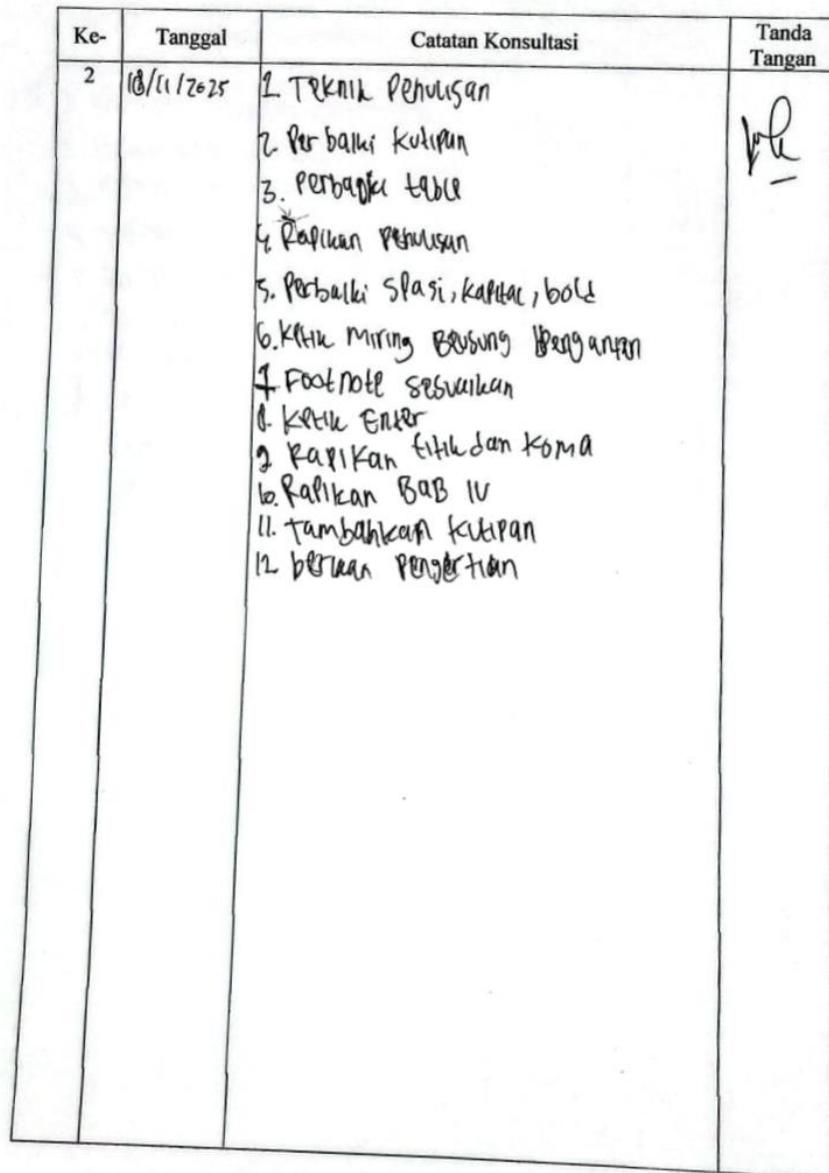 Ke- Tanggal Catatan Konsultasi Tanda Tangan
2 18/11/2025 1. Teknik Penulisan
2. Perbaiki Kutipan
3. Perbaiki table
4. Rapikan Penulisan
5. Perbaiki Spasi, Kapital, bold
6. Ketik Miring
7 Footnote sesuaikan
8. Ketik Enter
9 Rapikan titik dan Koma
10. Rapikan BAB IV
11. Tambahkan Kutipan
12 berikan Pengertian